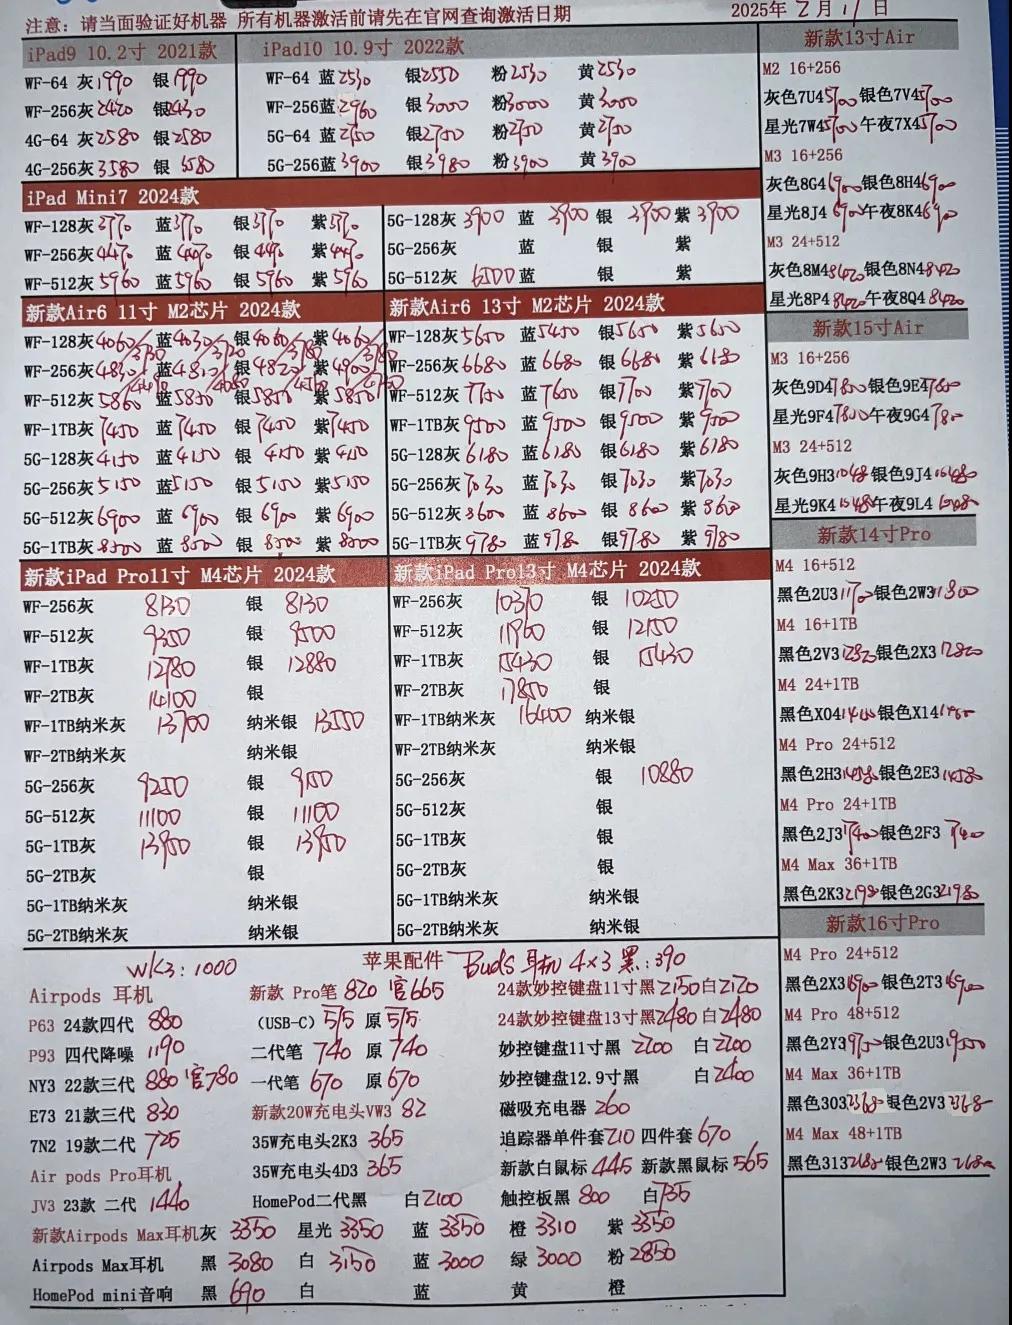 注意：请当面验证好机器 所有机器激活前请先在官网查询激活日期
2025年2月11日
iPad9 10.2寸 2021款
WF-64 灰1990 银1990
WF-256灰2420 银2430
4G-64 灰2580 银2580
4G-256灰3580 银3580
iPad10 10.9寸 2022款
WF-64 蓝2530 银2550 粉2530 黄2530
WF-256蓝2960 银3000 粉3000 黄3000
5G-64 蓝2750 银2750 粉2750 黄2750
5G-256蓝3900 银3980 粉3900 黄3900
iPad Mini7 2024款
WF-128灰3770 蓝3770 银3770 紫3770
WF-256灰4470 蓝4470 银4490 紫4490
WF-512灰5960 蓝5960 银5960 紫5960
5G-128灰3900 蓝3900 银3900 紫3900
5G-256灰 蓝 银 紫
5G-512灰6500 蓝 银 紫
新款Air6 11寸 M2芯片 2024款
WF-128灰4060 蓝4030 银4060 紫4060
WF-256灰4830 蓝4810 银4820 紫4900
WF-512灰5860 蓝5850 银5850 紫5850
WF-1TB灰7450 蓝7450 银7450 紫7450
5G-128灰4150 蓝4150 银4150 紫4150
5G-256灰5150 蓝5150 银5150 紫5150
5G-512灰6900 蓝6900 银6900 紫6900
5G-1TB灰8500 蓝8500 银8500 紫8500
新款Air6 13寸 M2芯片 2024款
WF-128灰5650 蓝5450 银5650 紫5650
WF-256灰6680 蓝6680 银6680 紫6180
WF-512灰7700 蓝7600 银7700 紫7700
WF-1TB灰9500 蓝9500 银9500 紫9500
5G-128灰6180 蓝6180 银6180 紫6180
5G-256灰7030 蓝7030 银7030 紫7030
5G-512灰8600 蓝8600 银8600 紫8600
5G-1TB灰9780 蓝9780 银9780 紫9780
新款iPad Pro11寸 M4芯片 2024款
WF-256灰 8130 银 8130
WF-512灰 9350 银 9500
WF-1TB灰 12780 银 12880
WF-2TB灰 14100 银
WF-1TB纳米灰 13700 纳米银 13550
WF-2TB纳米灰 纳米银
5G-256灰 9250 银 9150
5G-512灰 11100 银 11100
5G-1TB灰 13950 银 13950
5G-2TB灰 银
5G-1TB纳米灰 纳米银
5G-2TB纳米灰 纳米银
新款iPad Pro13寸 M4芯片 2024款
WF-256灰 10370 银 10250
WF-512灰 11960 银 12150
WF-1TB灰 15430 银 15430
WF-2TB灰 17850 银
WF-1TB纳米灰 16400 纳米银
WF-2TB纳米灰 纳米银
5G-256灰 银 10880
5G-512灰 银
5G-1TB灰 银
5G-2TB灰 银
5G-1TB纳米灰 纳米银
5G-2TB纳米灰 纳米银
新款13寸Air
M2 16+256
灰色7U4 5700 银色7V4 5700
星光7W4 5700 午夜7X4 5700
M3 16+256
灰色8G4 6900 银色8H4 6900
星光8J4 6900 午夜8K4 6900
M3 24+512
灰色8M4 8420 银色8N4 8420
星光8P4 8420 午夜8Q4 8420
新款15寸Air
M3 16+256
灰色9D4 7800 银色9E4 7800
星光9F4 7800 午夜9G4 780
M3 24+512
灰色9H3 银色9J4 10480
星光9K4 午夜9L4
新款14寸Pro
M4 16+512
黑色2U3 银色2W3 11800
M4 16+1TB
黑色2V3 12820 银色2X3 12820
M4 24+1TB
黑色X04 银色X14
M4 Pro 24+512
黑色2H3 银色2E3
M4 Pro 24+1TB
黑色2J3 银色2F3
M4 Max 36+1TB
黑色2K3 银色2G3 21980
新款16寸Pro
M4 Pro 24+512
黑色2X3 银色2T3
M4 Pro 48+512
黑色2Y3 银色2U3
M4 Max 36+1TB
黑色303 银色2V3
M4 Max 48+1TB
黑色313 银色2W3
WK3: 1000 苹果配件 Buds 耳机 4×3 黑:390
Airpods 耳机
P63 24款四代 880
P93 四代降噪 1190
NY3 22款三代 880 官780
E73 21款三代 830
7N2 19款二代 725
Air pods Pro耳机
JV3 23款 二代 1440
新款 Pro笔 820 官665
（USB-C）515 原515
二代笔 740 原740
一代笔 670 原670
新款20W充电头VW3 82
35W充电头2K3 365
35W充电头4D3 365
HomePod二代黑 白2100
24款妙控键盘11寸黑2150白2120
24款妙控键盘13寸黑2480白2480
妙控键盘11寸黑 2200 白2200
妙控键盘12.9寸黑 白2400
磁吸充电器 260
追踪器单件套210 四件套670
新款白鼠标445 新款黑鼠标565
触控板黑 800 白735
新款Airpods Max耳机灰 3350 星光3350 蓝 3350 橙 3310 紫 3350
Airpods Max耳机 黑 3080 白 3150 蓝 3000 绿 3000 粉 2850
HomePod mini音响 黑 690 白 蓝 黄 橙